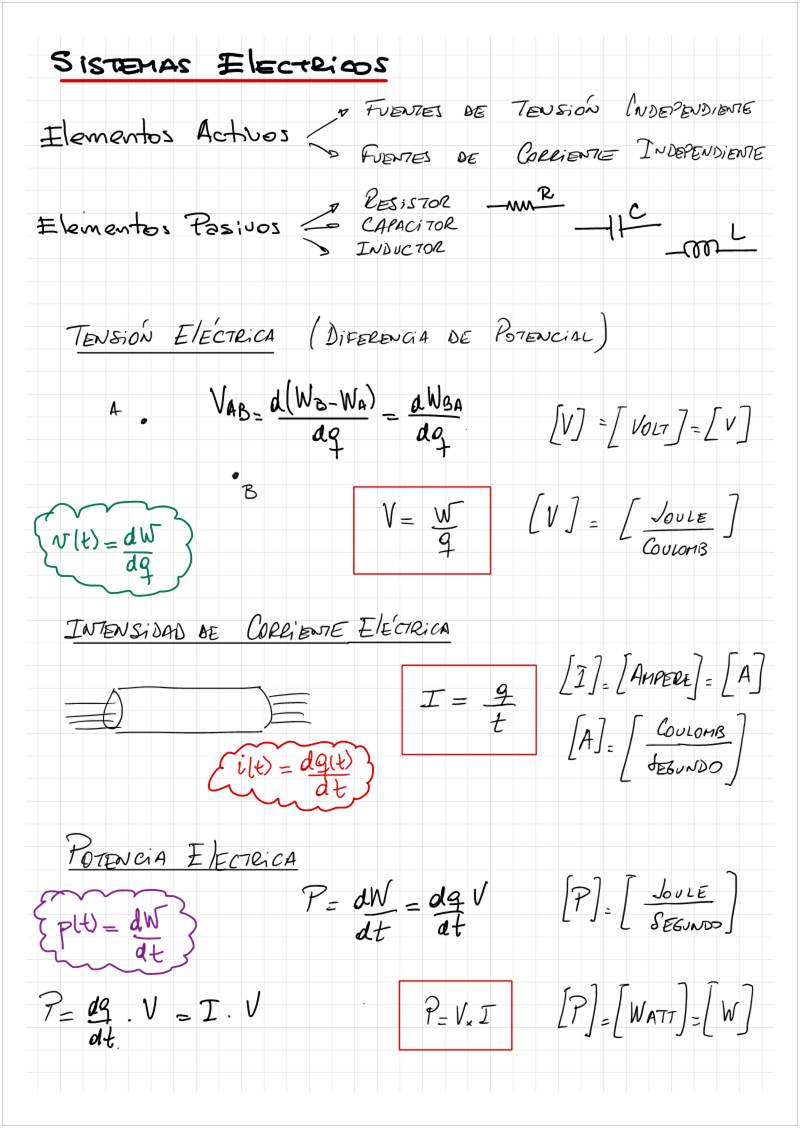 SISTEMAS ELECTRICOS
Elementos Activos
FUENTES DE TENSIÓN INDEPENDIENTE
FUENTES DE CORRIENTE INDEPENDIENTE
Elementos Pasivos
RESISTOR R
CAPACITOR C
INDUCTOR L
TENSIÓN ELÉCTRICA (DIFERENCIA DE POTENCIAL)
A
V_AB = d(W_B - W_A)/dq = dW_BA/dq
[V] = [VOLT] = [V]
B
v(t) = dW/dq
V = W/q
[V] = [JOULE/COULOMB]
INTENSIDAD DE CORRIENTE ELÉCTRICA
I = q/t
[I] = [AMPERE] = [A]
[A] = [COULOMB/SEGUNDO]
i(t) = dq(t)/dt
POTENCIA ELECTRICA
p(t) = dW/dt
P = dW/dt = dq/dt V
[P] = [JOULE/SEGUNDO]
P = dq/dt . V = I . V
P = V x I
[P] = [WATT] = [W]